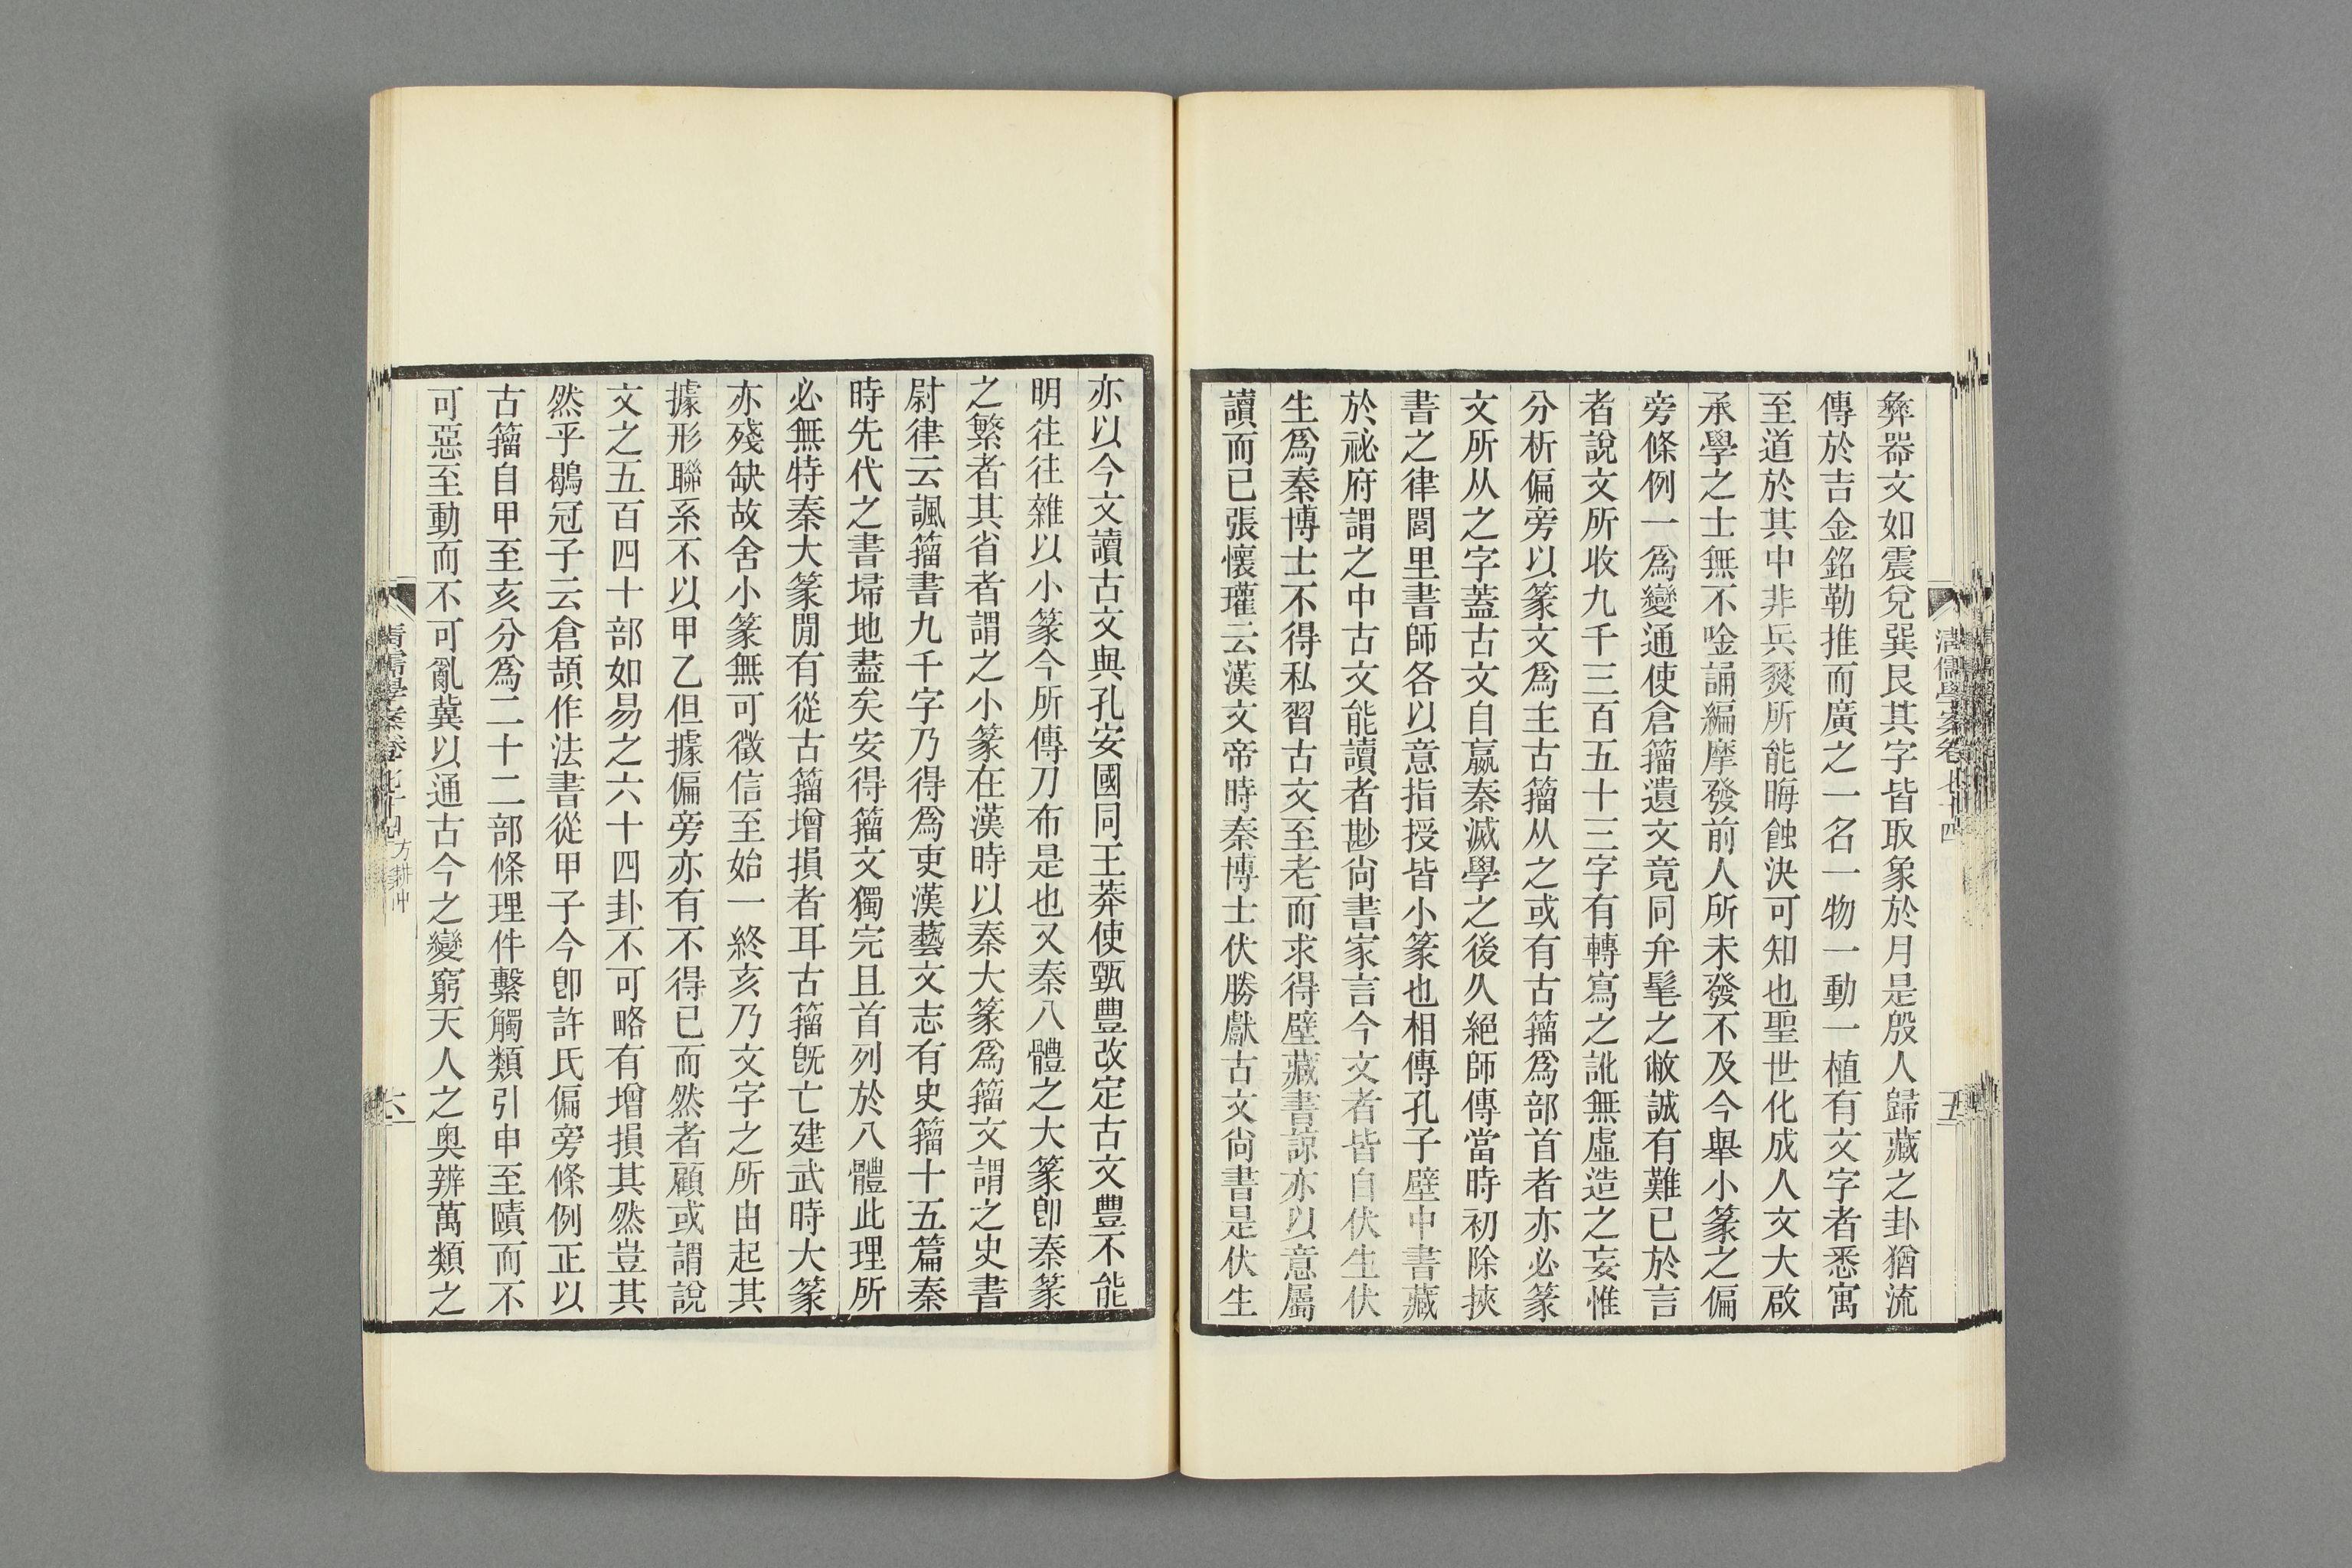 彝器文如震兌巽艮其字皆取象於月是殷人歸藏之卦猶流
傳於吉金銘勒推而廣之一名一物一動一植有文字者悉寓
至道於其中非兵燹所能晦蝕決可知也聖世化成人文大啟
承學之士無不唫誦編摩發前人所未發不及今舉小篆之偏
旁條例一爲變通使倉籀遺文竟同弁髦之敝誠有難已於言
者說文所收九千三百五十三字有轉寫之訛無虛造之妄惟
分析偏旁以篆文爲主古籀从之或有古籀爲部首者亦必篆
文所从之字蓋古文自嬴秦滅學之後久絕師傳當時初除挾
書之律閭里書師各以意指授皆小篆也相傳孔子壁中書藏
於祕府謂之中古文能讀者尟尙書家言今文者皆自伏生伏
生爲秦博士不得私習古文至老而求得壁藏書諒亦以意屬
讀而已張懷瓘云漢文帝時秦博士伏勝獻古文尙書是伏生
清儒學案卷七十四
五
亦以今文讀古文與孔安國同王莽使甄豐改定古文豐不能
明往往雜以小篆今所傳刀布是也又秦八體之大篆卽秦篆
之繁者其省者謂之小篆在漢時以秦大篆爲籀文謂之史書
尉律云諷籀書九千字乃得爲吏漢藝文志有史籀十五篇秦
時先代之書埽地盡矣安得籀文獨完且首列於八體此理所
必無特秦大篆閒有從古籀增損者耳古籀旣亡建武時大篆
亦殘缺故舍小篆無可徵信至始一終亥乃文字之所由起其
據形聯系不以甲乙但據偏旁亦有不得已而然者顧或謂說
文之五百四十部如易之六十四卦不可略有增損其然豈其
然乎鶡冠子云倉頡作法書從甲子今卽許氏偏旁條例正以
古籀自甲至亥分爲二十二部條理件繫觸類引申至賾而不
可惡至動而不可亂冀以通古今之變窮天人之奥辨萬類之
清儒學案卷七十四 方耕中
六